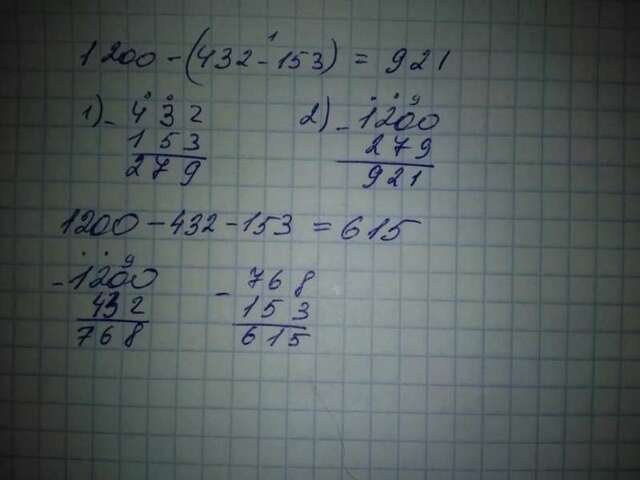 1
1200-(432-153) = 921
1) - 432
153
279
2) - 9
1200
279
921
1200-432-153 = 615
9
- 1200
432
768
- 768
153
615